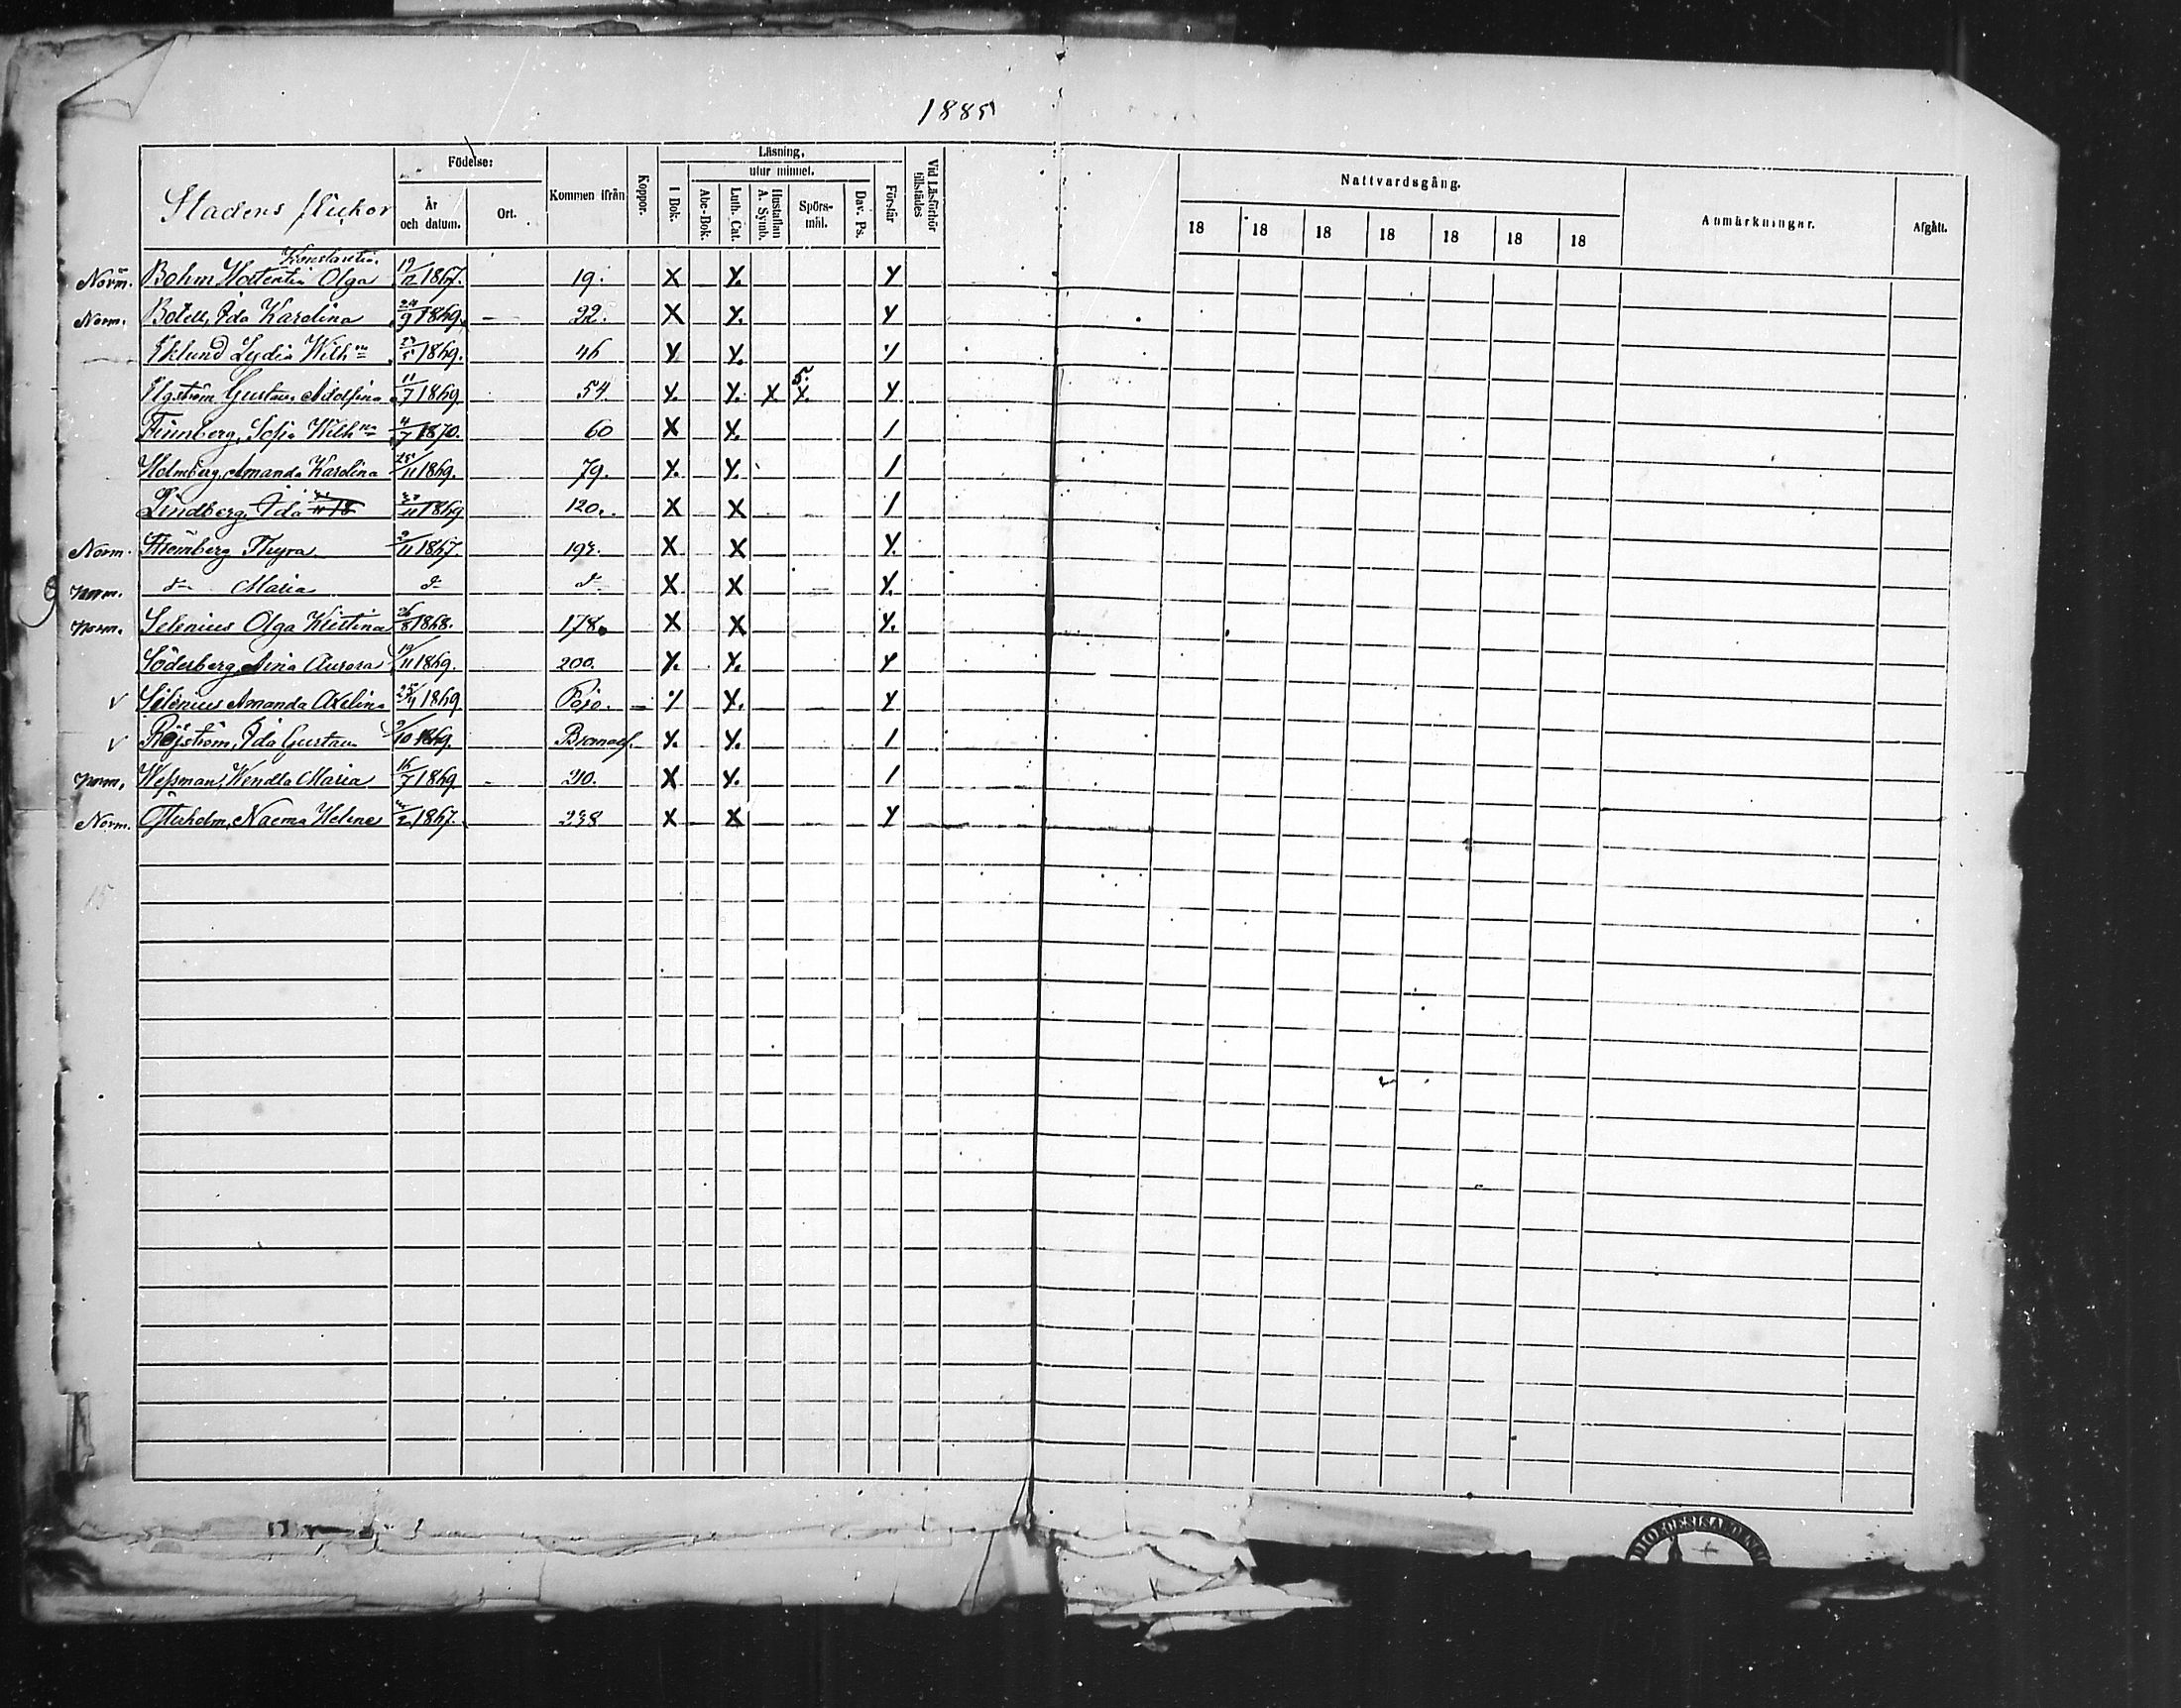 1885
Stadens flickor
Födelse: År och datum. Ort. Kommen ifrån Koppor. Läsning, I Bok. utur minnet. Abc-Bok. Luth. Cat. Hustaflan A. Symb. Spörs-mål. Dav. Ps. Förstår Vid Läsförhör tillstädes Nattvardsgång. 18 18 18 18 18 18 18 Anmärkningar. Afgått.
Konstantia
Norm. Bohm Hortentia Olga 19/12 1867. 19. X X. X
Norm. Botell, Ida Karolina 24/9 1869. 22. X X. X
Eklund Lydia Wilh:na 1869. 46 X X. X
Elgström Gustava Adolfina 11/7 1869. 54. X. X. X 5. X. X
Wilh:na 1870. 60 X X. /
Holmberg, Amanda Karolina 25/11 1869. 79. X. X. /
Lindberg, Ida 1869 120. X X /
Norm. Thyra 2/11 1867 X X X.
Norm. d:o Maria d:o d:o X X X.
Norm. Selenius Olga Kristina 26/8 1868. 178. X X X.
Söderberg, Aina Aurora 19/11 1869. 200. X. X. X
v Selenius Amanda Axelina 1869. Pojo. X X. X
v Röjström, Ida Gustava 9/10 1869. Bromarf. X. X. /
Norm. Wessman, Wendla Maria 16/7 1869. 210. X X. /
Norm. Naema Helena 1867. 238 X X X
15